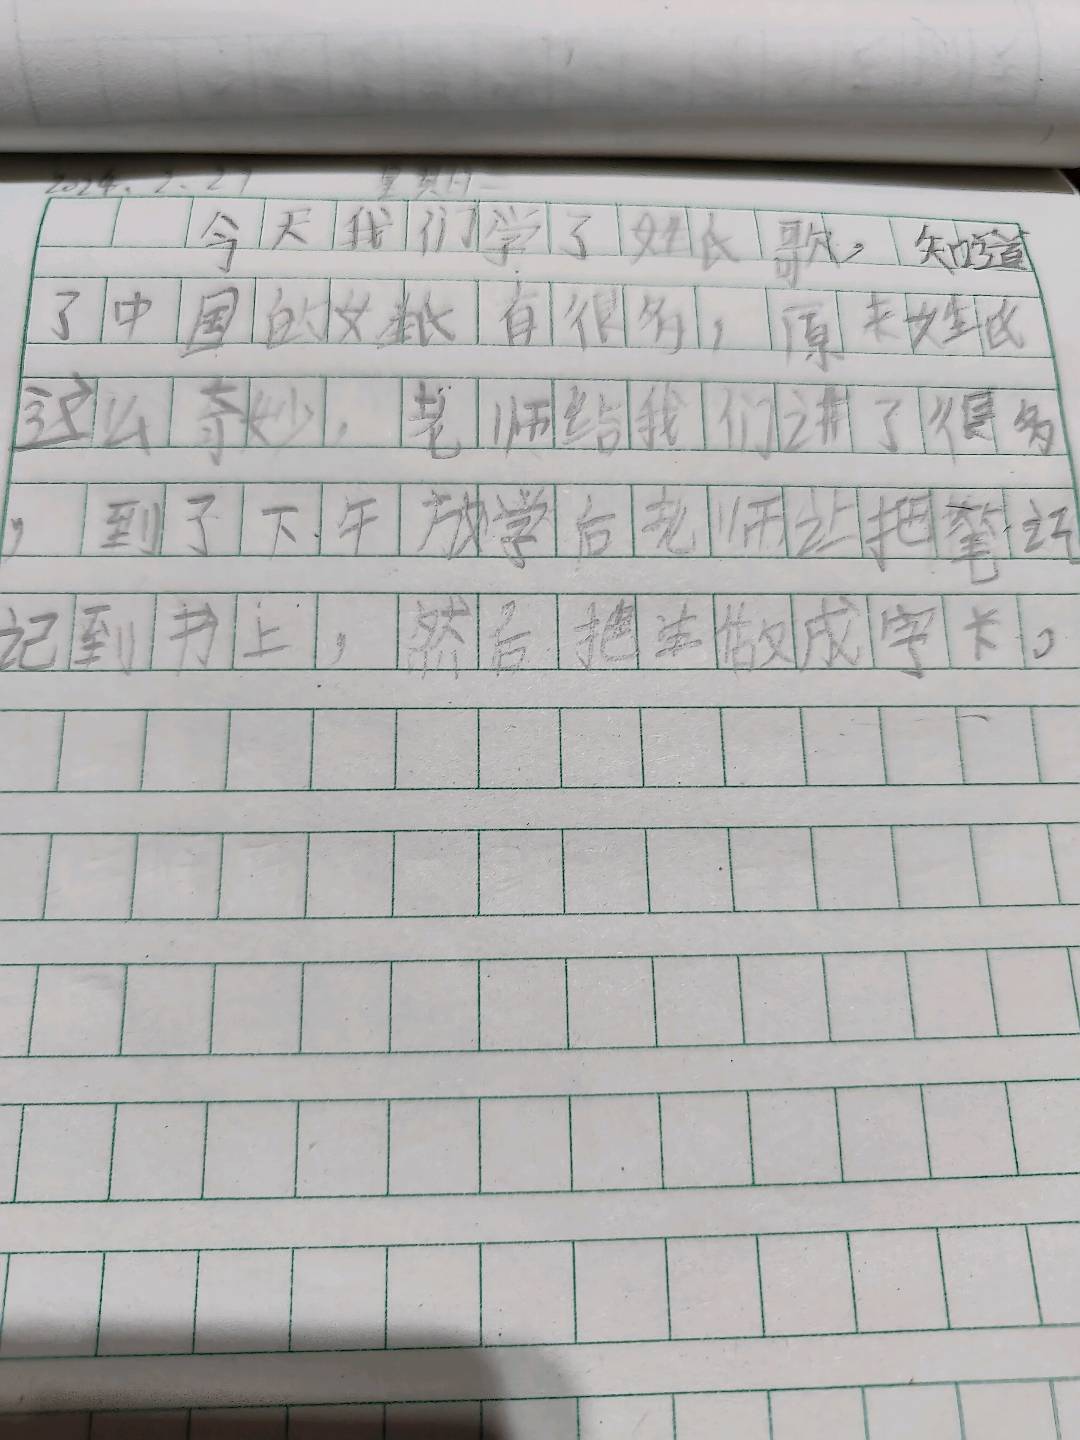 2024.2.27 星期二
今天我们学了姓氏歌，知道
了中国的姓氏有很多，原来姓氏
这么奇妙，老师给我们讲了很多
，到了下午放学后老师让把笔记
记到书上，然后把生做成字卡。